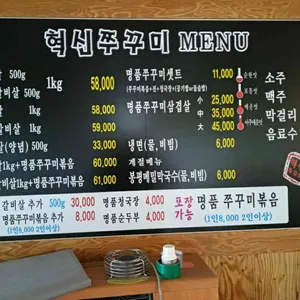 혁신쭈꾸미 MENU
살 500g
비살 1kg 58,000
살 1kg 58,000
비살 59,000
살(양념) 500g 33,000
비살 1kg+명품쭈꾸미볶음 60,000
비살1kg+명품쭈꾸미볶음 61,000
갈비살 추가 500g 30,000
명품쭈꾸미볶음 추가 8,000
명품쭈꾸미셋트 11,000
명품쭈꾸미삼겹살 小 25,000
中 35,000
大 45,000
냉면(물, 비빔) 6,000
계절메뉴
봉평메밀막국수(물,비빔) 6,000
명품청국장 4,000
명품순두부 4,000
포장 가능
명품 쭈꾸미볶음
(1인8,000 2인이상)
소주
맥주
막걸리
음료수